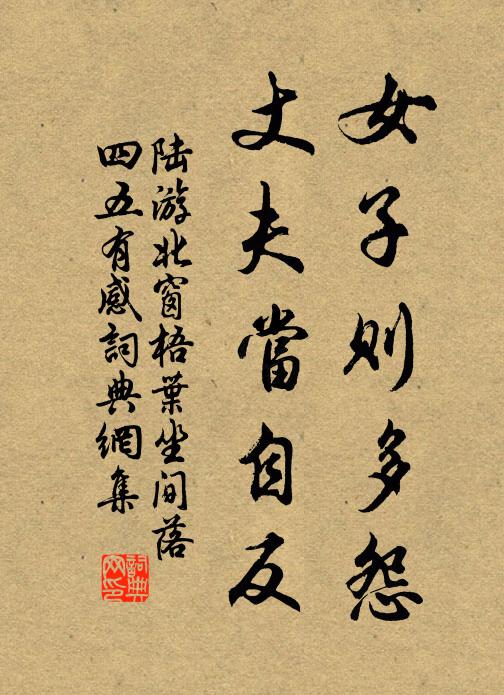 女子则多怨
丈夫當自反
陆游北窗梧葉坐间落
四五有感詞典網集
詞典网印